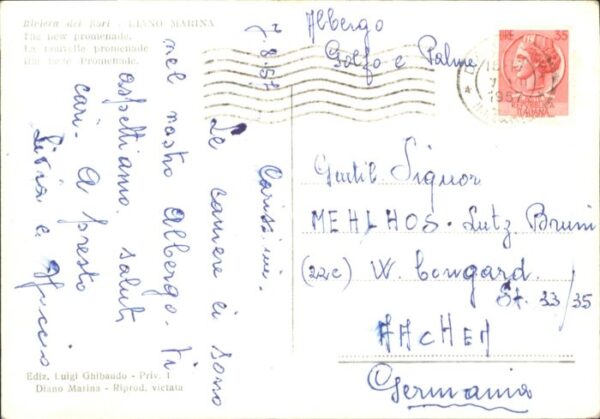 Riviera dei Fiori - DIANO MARINA
The new promenade.
La nouvelle promenade
Die neue Promenade.
Albergo
Golfo e Palme
7.8.57
Carissimi.
Le camere ci sono
nel nostro albergo. Vi
aspettiamo. saluti
cari. A presto
Livia e
35
1957
ITALIANA
Gentil. Signor
MEHLHOS. Lutz. Bruni
(22c) W. Congard.
St. 33/35
AACHEN
Germania
Ediz. Luigi Ghibaudo - Priv. 1
Diano Marina - Riprod. vietata